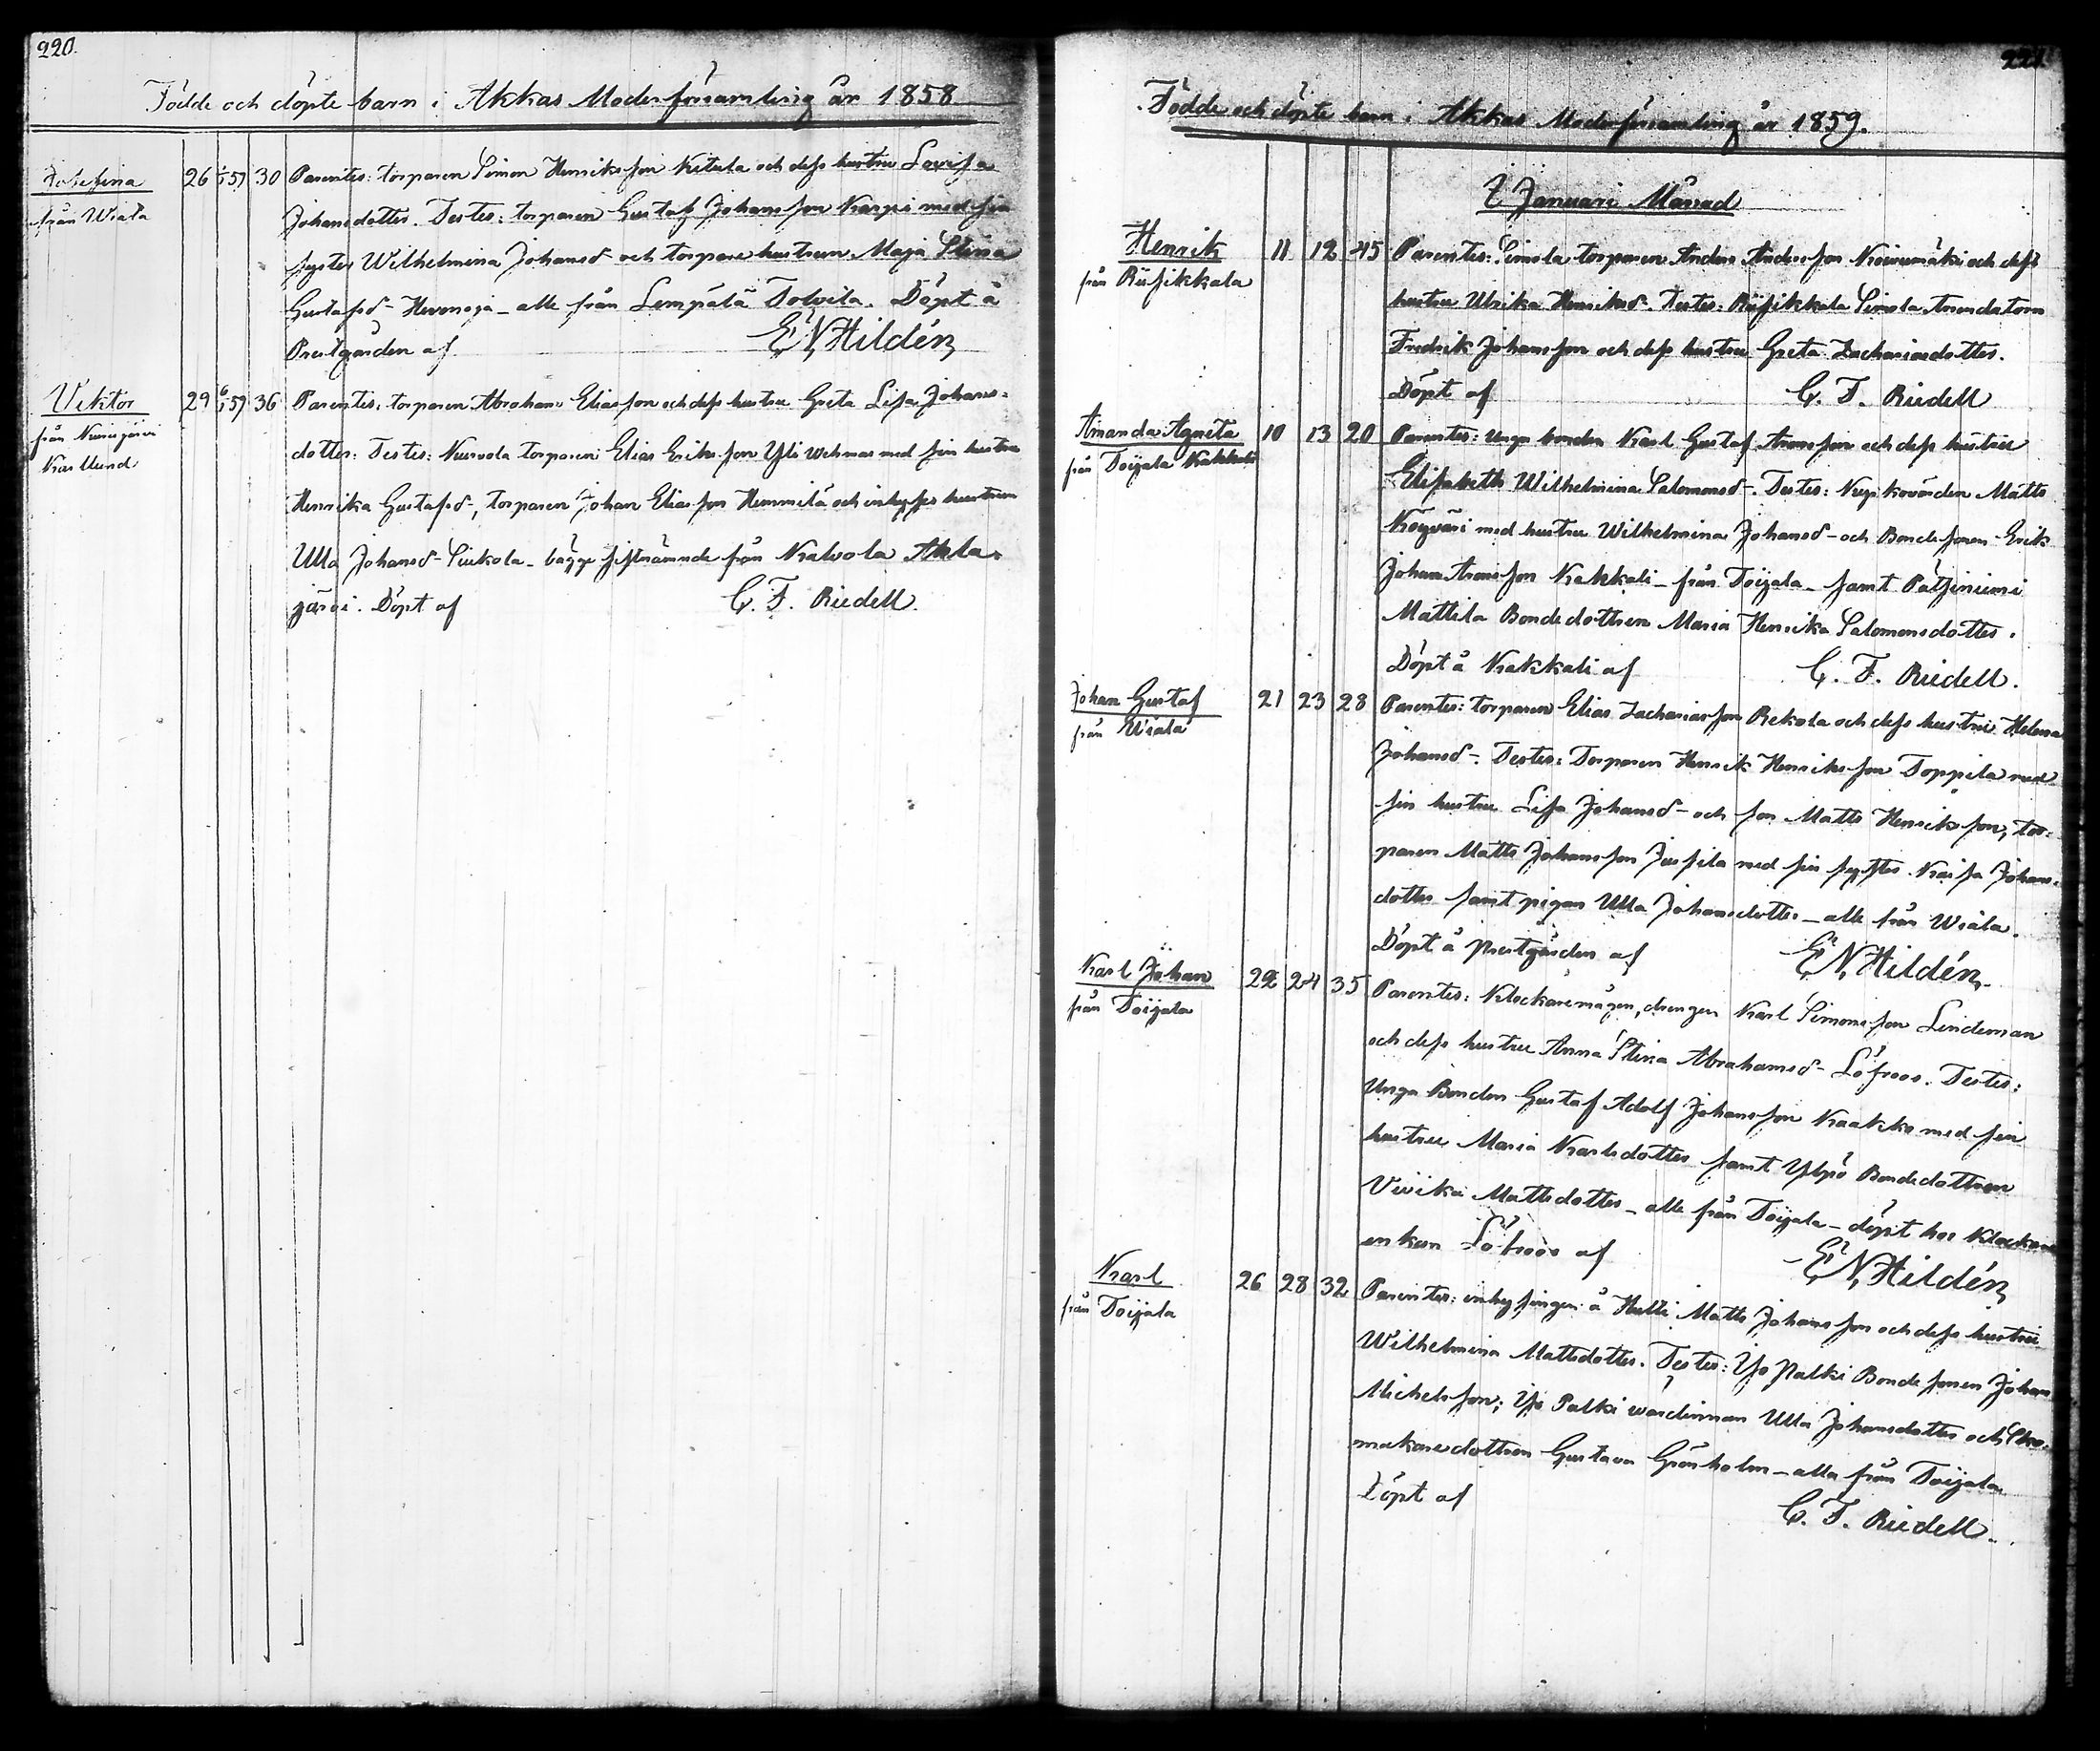 220.
Födde och döpte barn i Akkas Moderförsamling år 1858
Josefina
från Wiala
26 1/1 59 30 Parentes: torparen Simon Henriksson Kitula och dess hustru Lovisa
Johansdotter. Testes: torparen Gustaf Johansson Karpi med sin
syster Wilhelmina Johansd- och torparehustrun Maja Stina
Gustafsd- Hevonoja - alle från Lempälä Tolvila. Döpt å
Prestgården af E N Hildén
Viktor
från
29 6/1 59 36 Parentes: torparen Abraham Eliasson och dess hustru Greta Lisa Johans-
dotter. Testes: torparen Elias Eriksson Yli med sin hustru
Henrika Gustafsd-, torparen Johan Eliasson Hemmilä och inhyses hustrun
Ulla Johansd- - bägge sistnämnde från Kalvola Ahla-
järvi. Döpt af C. F. Riedell.
221.
Födde och döpte barn i Akkas Moderförsamling år 1859.
I Januari Månad
Henrik
från Riisikkala
11 12 45 Parentes: Simola torparen Anders Andersson och dess
hustru Ulrika Henriksd-. Testes: Riisikkala Simola Arendatorn
Fredrik Johansson och dess hustru Greta Zachariasdotter.
Döpt af C. F. Riedell
Amanda Agneta
från Toijala Kakkali
10 13 20 Parentes: unga bonden Karl Gustaf Aronsson och dess hustru
Elisabeth Wilhelmina Salomonsd-. Testes: Matts
med hustru Wilhelmina Johansd- och Bondesonen Erik
Johan Aronsson Kakkali - från Toijala - samt Pätsiniemi
Mattila Bondedottren Maria Henrika Salomonsdotter.
Döpt å Kakkali af C. F. Riedell.
Johan Gustaf
från Wiala
21 23 28 Parentes: torparen Elias Zachariasson Rekola och dess hustru Helena
Johansd-. Testes: Torparen Henrik Henriksson Toppila med
sin hustru Lisa Johansd- och son Matts Henriksson, tor-
paren Matts Johansson Jussila med sin syster Kaisa Johans-
dotter samt pigan Ulla Johansdotter - alle från Wiala.
Döpt å Prestgården af E N Hildén
Karl Johan
från Toijala
22 24 35 Parentes: Klockaremågen, drengen Karl Simonsson Lindeman
och dess hustru Anna Stina Abrahamsd- Löfroos. Testes:
Unga Bonden Gustaf Adolf Johansson Kaakko med sin
hustru Maria Karlsdotter samt Ylpö Bondedottren
Vivika Mattsdotter - alle från Toijala - döpt hos Klockare
enkan Löfroos af E N Hildén
Karl
från Toijala
26 28 32 Parentes: inhysingen å Hutti Matts Johansson och dess hustru
Wilhelmina Mattsdotter. Testes: Iso Palki Bondesonen Johan
Michelsson; Iso Palki wärdinnan Ulla Johansdotter och Sko-
makaredottren Gustava Grönholm - alla från Toijala.
Döpt af C. F. Riedell.